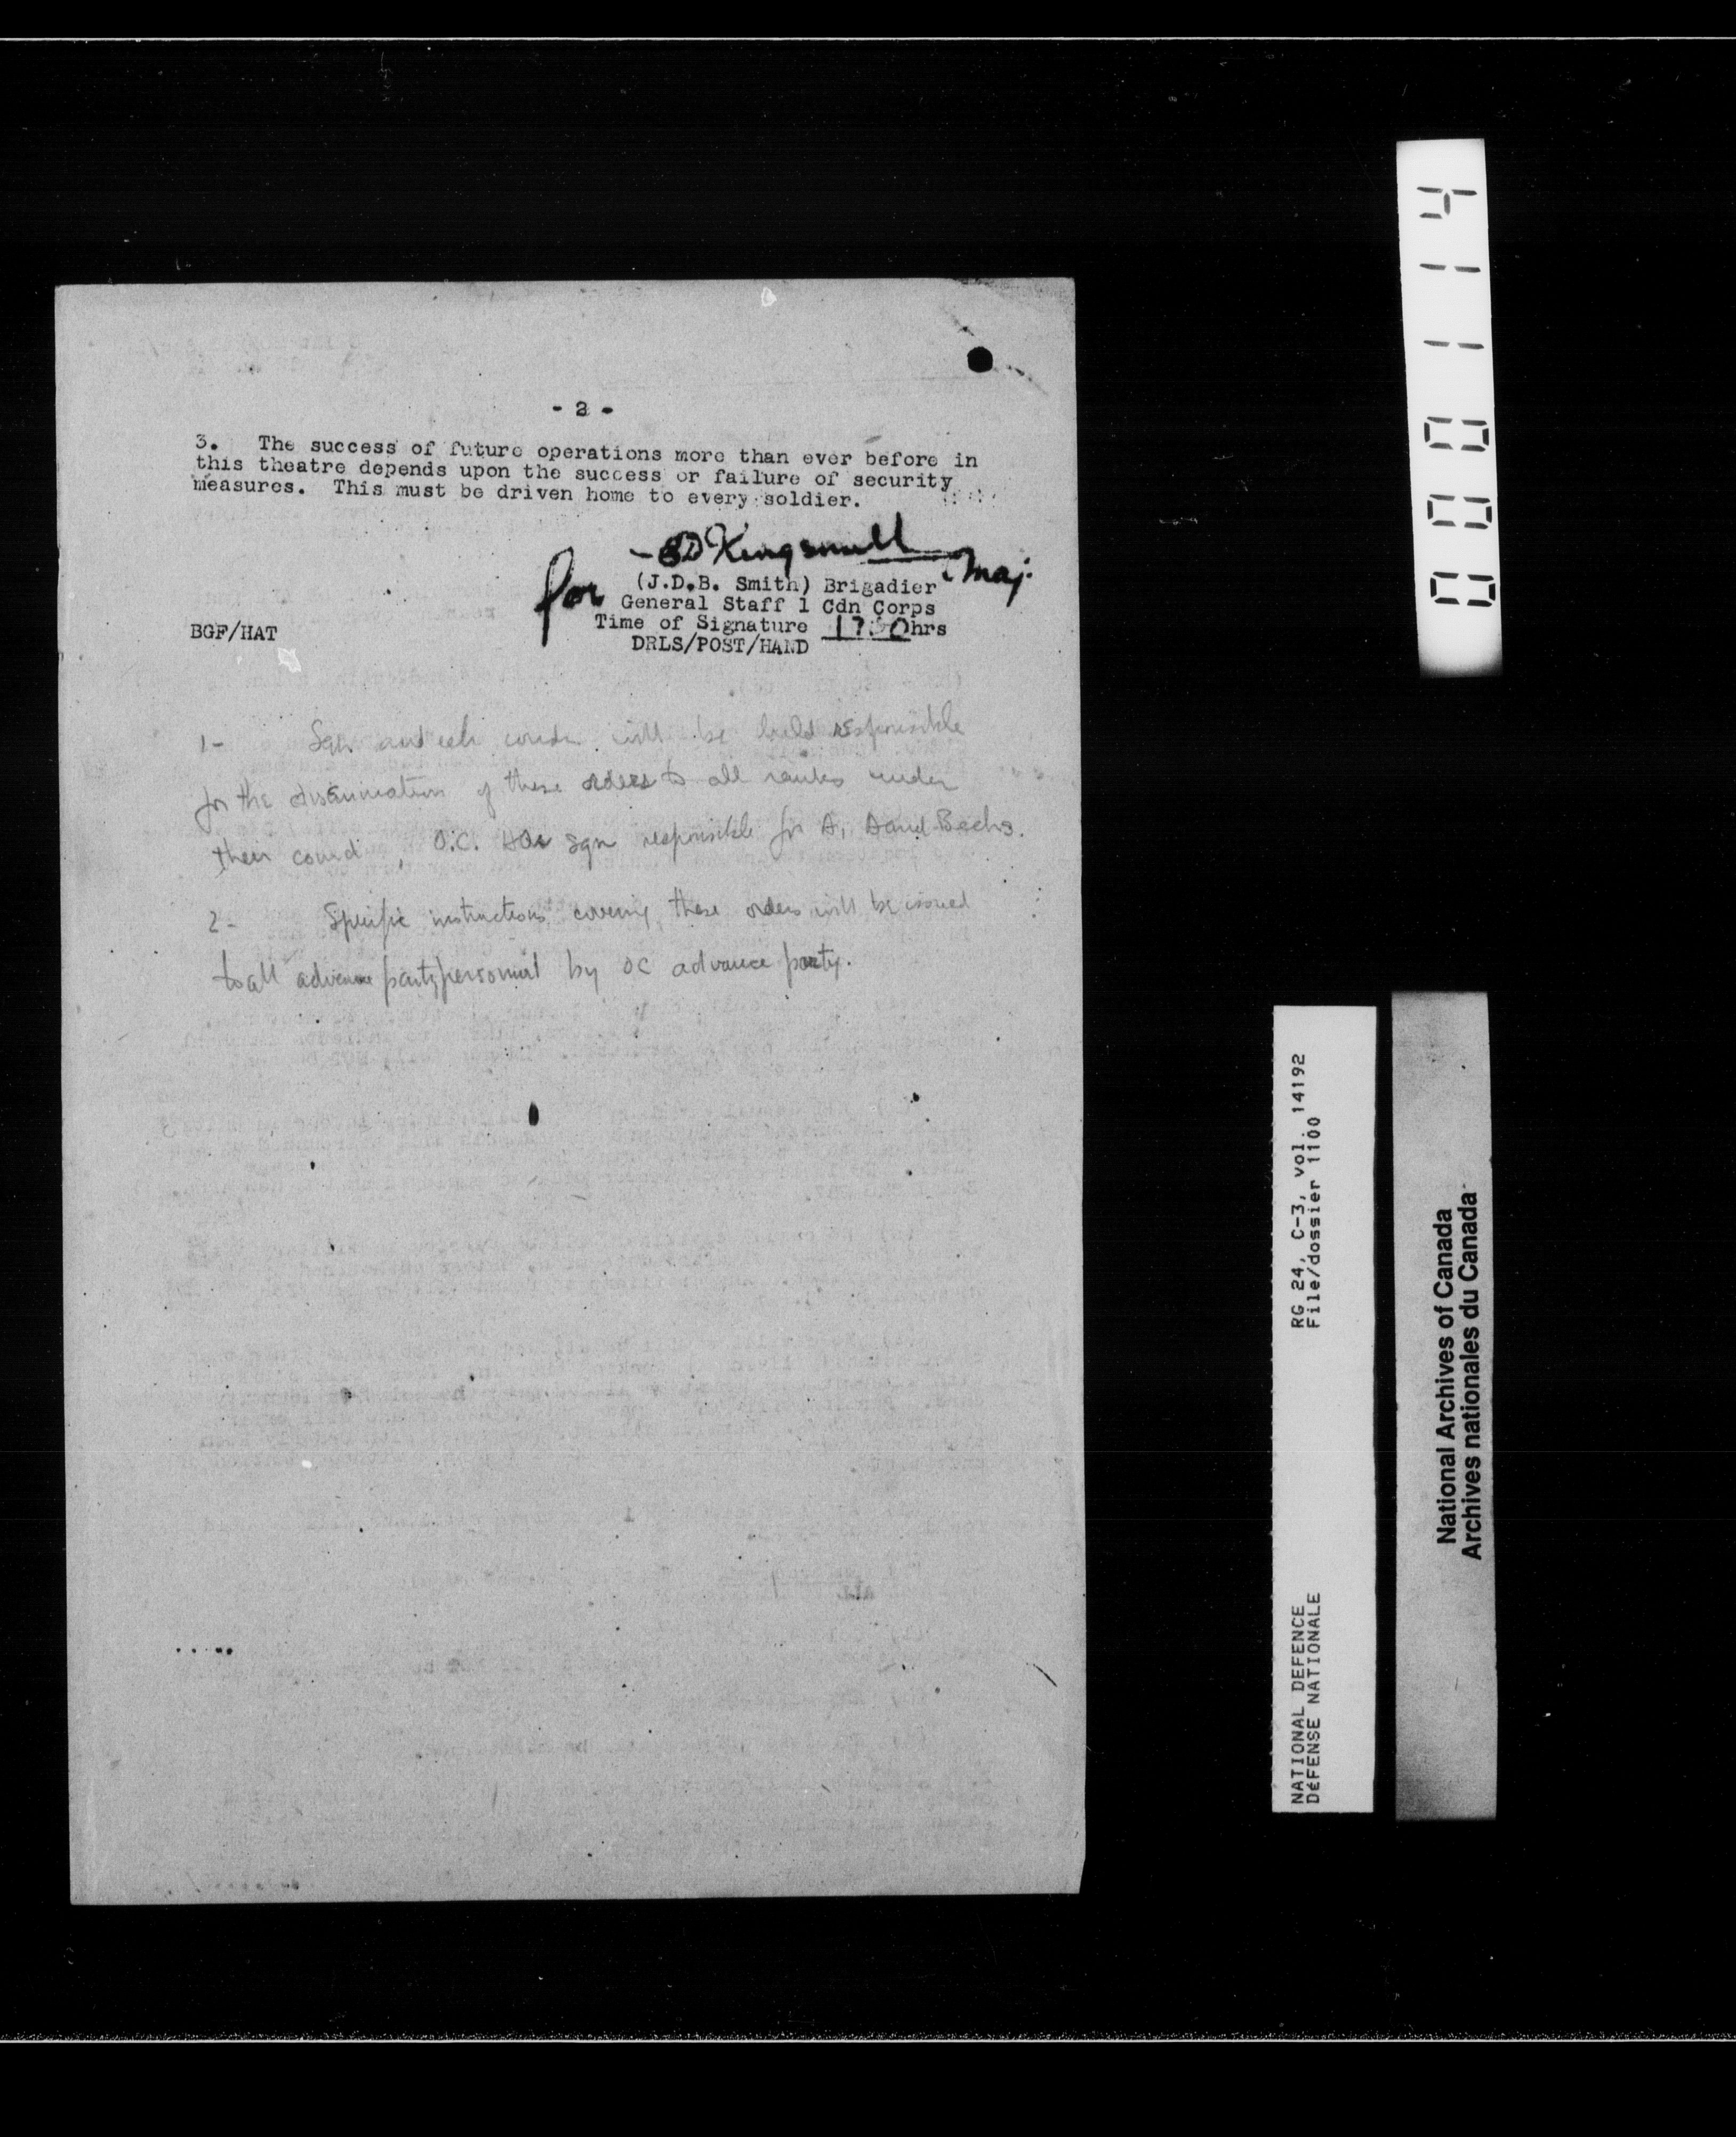 - 2 -
3. The success of future operations more than ever before in
this theatre depends upon the success or failure of security
measures. This must be driven home to every soldier.
Kingsmill Maj.
for (J.D.B. Smith) Brigadier
General Staff 1 Cdn Corps
Time of Signature 1730hrs
BGF/HAT
DRLS/POST/HAND
1- Sqn and ech comdr will be held responsible
for the dissemination of these orders to all ranks under
their comd, O.C. HQ Sqn responsible for A, A and B echs.
2- Specific instructions covering these orders will be issued
to all advance party personnel by OC advance party.
0000114
RG 24, C-3, vol. 14192
File/dossier 1100
NATIONAL DEFENCE
DéFENSE NATIONALE
National Archives of Canada
Archives nationales du Canada